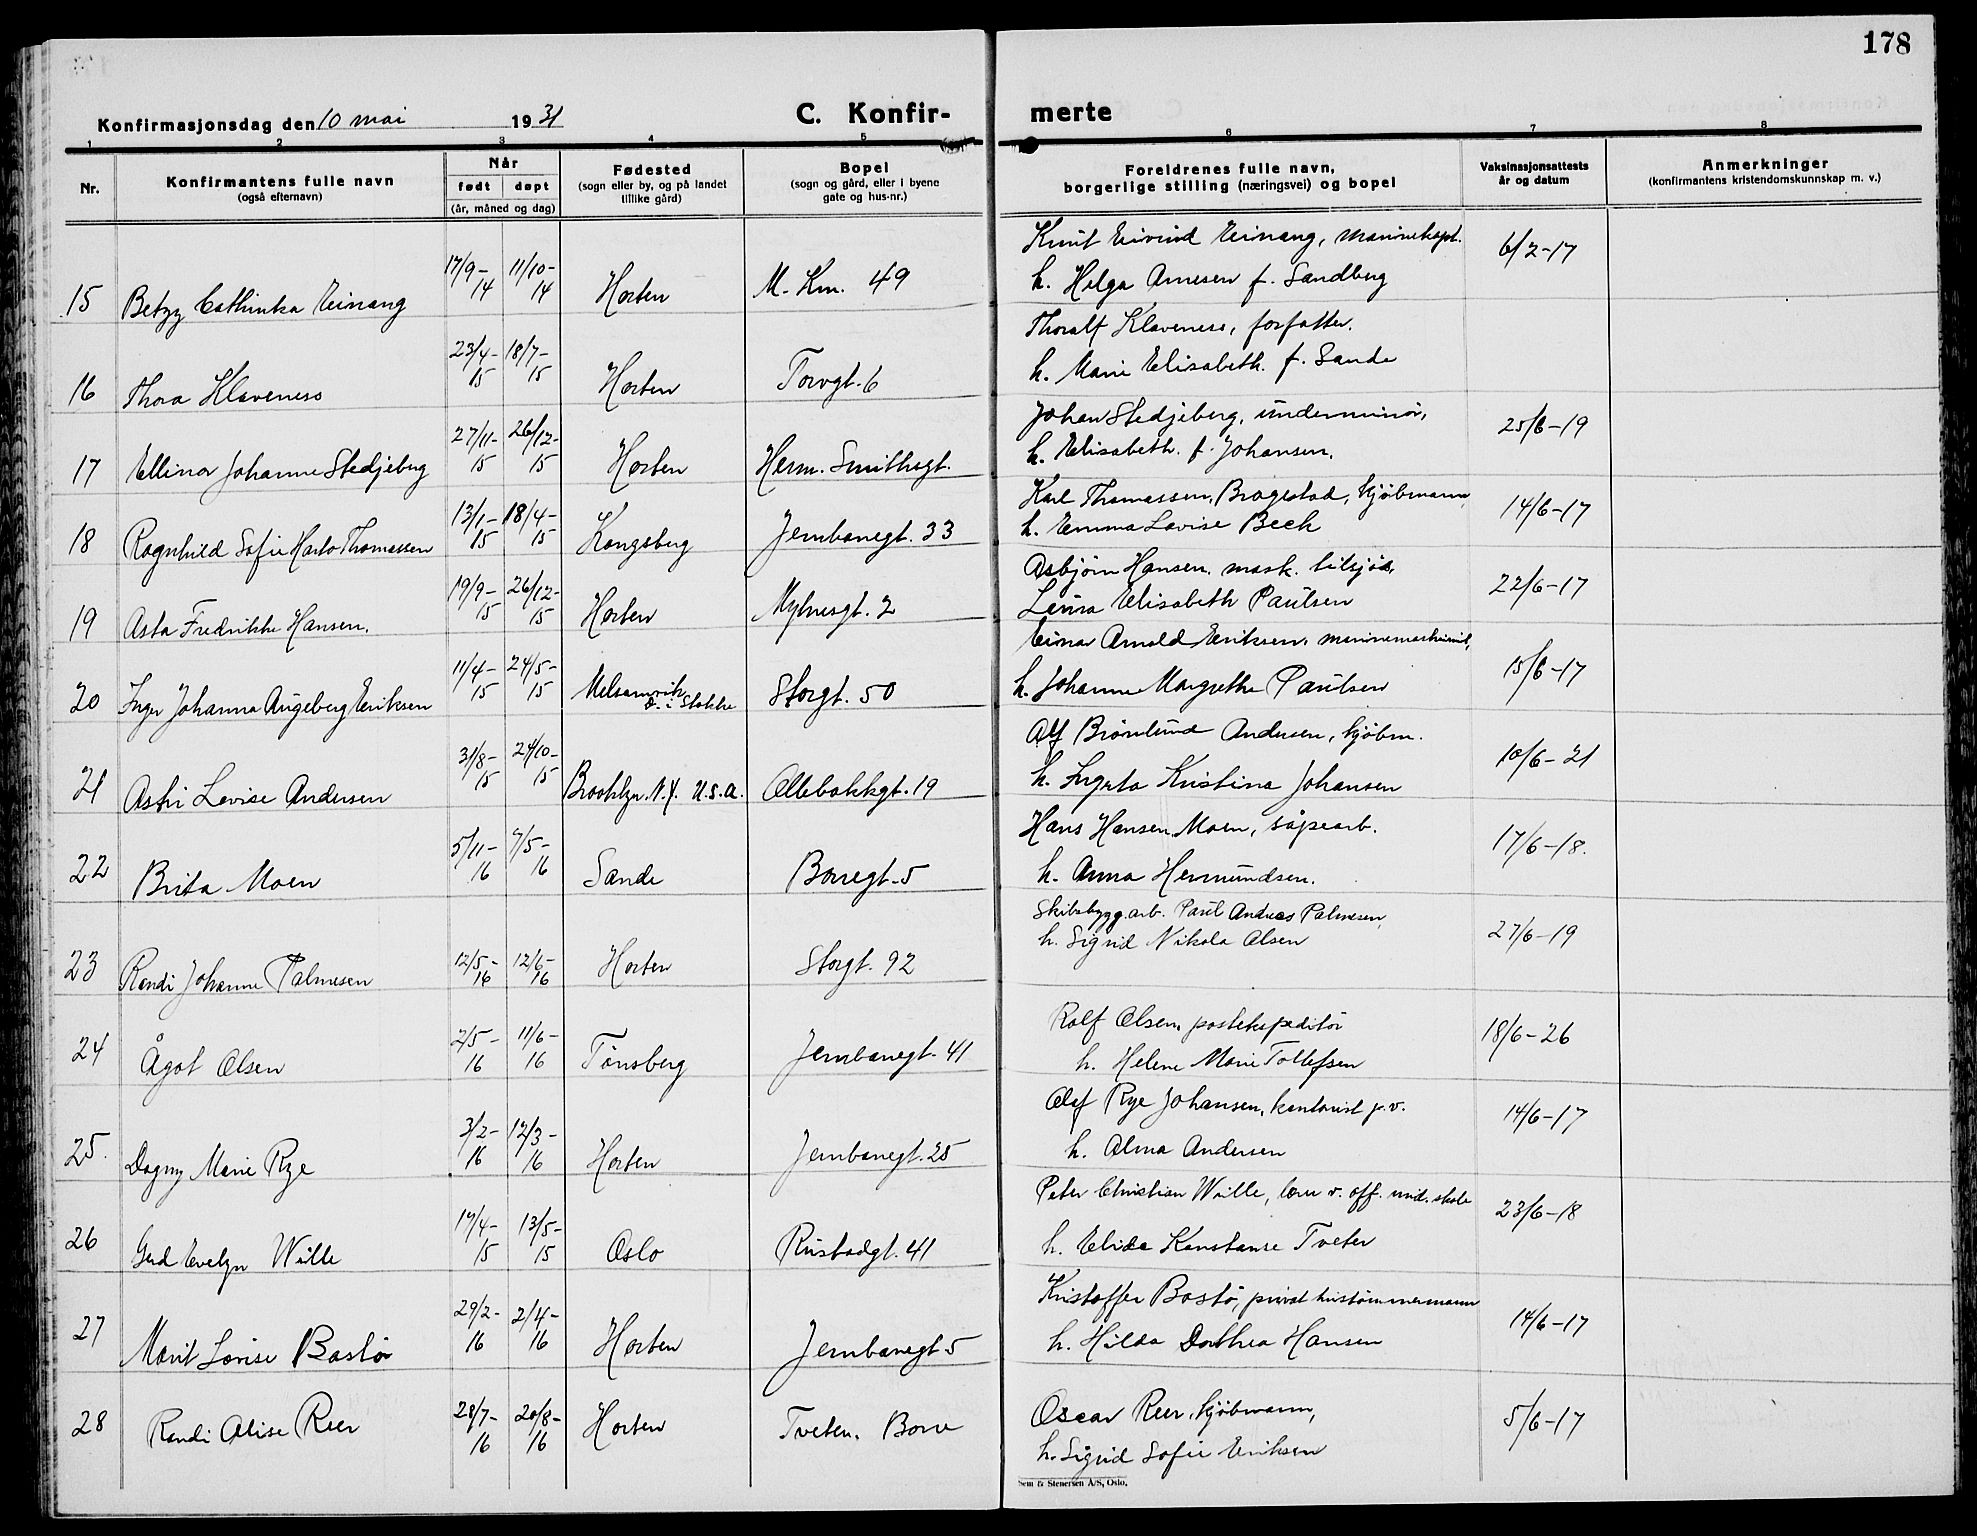 178
Konfirmasjonsdag den 10 mai 1931
C. Konfir- merte
1 2 3 4 5 6 7 8
Nr.
Konfirmantens fulle navn
(også efternavn)
Når
født døpt
(år, måned og dag)
Fødested
(sogn eller by, og på landet
tillike gård)
Bopel
(sogn og gård, eller i byene
gate og hus-nr.)
Foreldrenes fulle navn,
borgerlige stilling (næringsvei) og bopel
Vaksinasjonsattests
år og datum
Anmerkninger
(konfirmantens kristendomskunnskap m. v.)
Knut Eivind Einang, marinekapt. 6/2-17
h. Helga Arnesen f. Sandberg
15 Betzy Cathinka Einang 17/9-14 11/10-14 Horten M. Km. 49
Thoralf Klaveness, forfatter.
h. Marie Elisabeth. f. Sande
16 Thora Klaveness 23/4-15 18/7-15 Horten Torvgt. 6
Johan Stedjeberg, underminør, 25/6-19
h. Elisabeth. f. Johansen.
17 Ellinor Johanne Stedjeberg 27/11-15 26/12-15 Horten Herm. Smithsgt.
Karl Thomassen, Bragestad, kjøbmann, 14/6-17
h. Emma Lovise Bech
18 Ragnhild Sofie Thomassen 13/1-15 18/4-15 Kongsberg Jernbanegt. 33
Asbjørn Hansen, mask. 22/6-17
Elisabeth Paulsen
19 Asta Fredrikke Hansen. 19/9-15 26/12-15 Horten Myhresgt. 2
Einar Arnold Eriksen, marinemaskinist, 15/6-17
h. Johanne Margrethe Paulsen
20 Inger Johanna Augeberg Eriksen 11/4-15 24/5-15 Melsomvik Stokke Storgt. 50
Alf Brønlund Andersen, kjøbm. 10/6-21
h. Kristina Johansen
21 Astri Levise Andersen 31/8-15 24/10-15 Brooklyn. N.Y. U.S.A. Ollebakkgt. 19
Hans Hansen Moen, såpearb. 17/6-18.
h. Anna Hermundsen.
22 Brita Moen 5/11-16 7/5-16 Sande Borregt. 5
Skibsbygg.arb. Paul Andreas Palmesen, 27/6-19
h. Sigrid Nikola Olsen
23 Randi Johanne Palmesen 12/5-16 12/6-16 Horten Storgt. 92
Rolf Olsen, postekspeditør 18/6-26
h. Helene Marie Tollefsen
24 Ågot Olsen 2/5-16 11/6-16 Tønsberg Jernbanegt. 41
Olaf Rye Johansen, kontorist p.v. 14/6-17
h. Alma Andersen
25. Dagny Marie Rye 3/2-16 12/3-16 Horten Jernbanegt. 25
Peter Christian Wille, lærer v. off. und. skole 23/6-18
h. Elida Konstanse Tveter
26 Gerd Evelyn Wille 17/4-15 13/5-15 Oslo Rustadgt. 41
Kristoffer Bastø, privat hustømmermann 14/6-17
h. Hilda Dorthea Hansen
27 Marit Lovise Bastø 29/2-16 2/4-16 Horten Jernbanegt 5
Oscar Reer, kjøbmann, 5/6-17
28 Randi Alise Reer 28/7-16 20/8-16 Horten Tveten, Borre
h. Sigrid Sofie Eriksen
Sem & Stenersen A/S, Oslo.